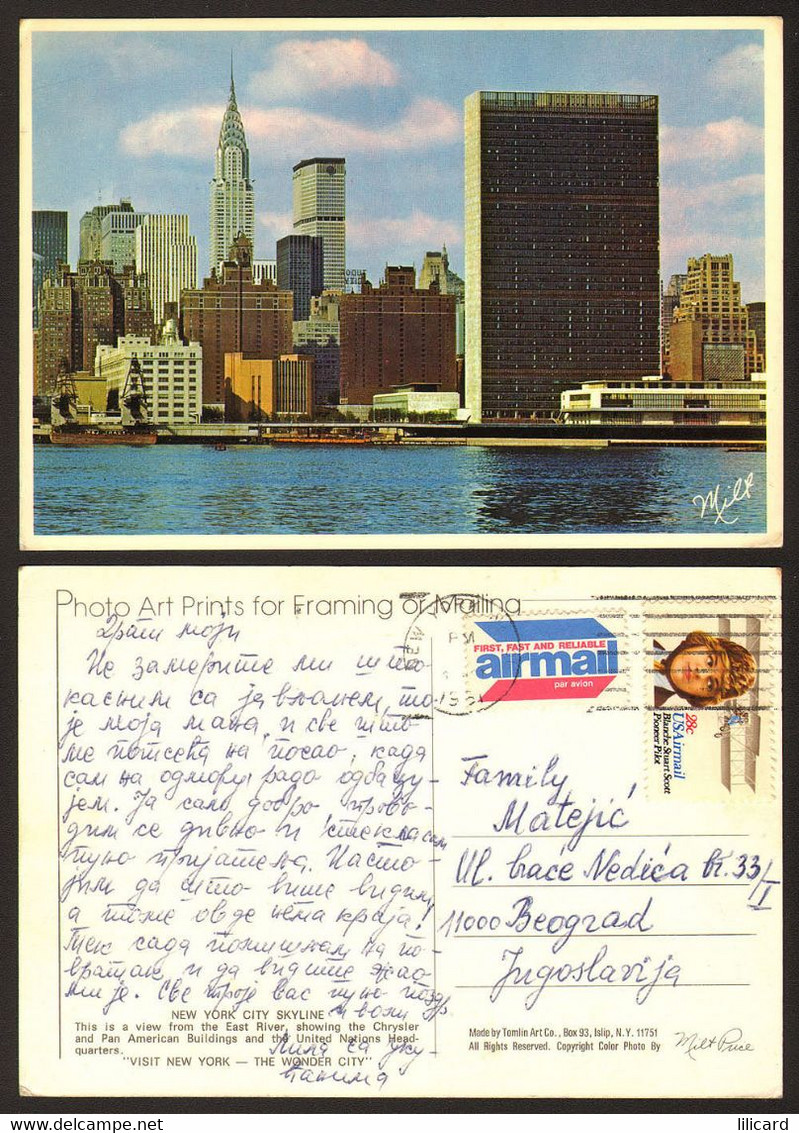 Milt
Photo Art Prints for Framing or Mailing
Драги моји
Не замерите ми што
касним са јављањем, то
је моја мана, и све што
ме потсећа на посао, када
сам на одмору радо одбацу-
јем. Ја сам добро, прово-
дим се дивно и стекла сам
пуно пријатеља. Насто-
јим да што више видим,
а томе овде нема краја!
Тек сада помишљам на по-
вратак, и да видите жао
ми је. Све троје вас пуно поздр
и воли
Лила са уку-
ћанима
NEW YORK CITY SKYLINE
This is a view from the East River, showing the Chrysler
and Pan American Buildings and the United Nations Head-
quarters.
"VISIT NEW YORK — THE WONDER CITY"
PM
1981
FIRST, FAST AND RELIABLE
airmail
par avion
28c
USAirmail
Blanche Stuart Scott
Pioneer Pilot
Family
Matejić
Ul. braće Nedića br. 33/I
11000 Beograd
Jugoslavija
Made by Tomlin Art Co., Box 93, Islip, N.Y. 11751
All Rights Reserved. Copyright Color Photo By
Milt Price
lilicard